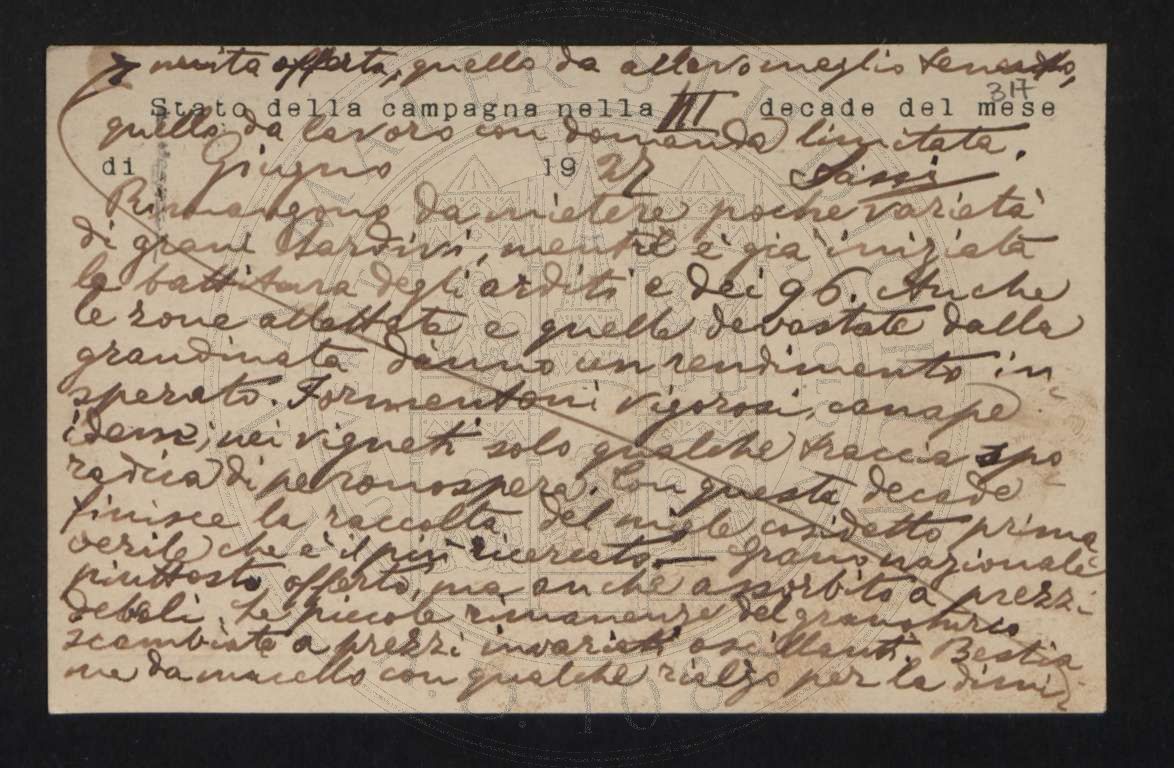 nuita offerta, quello da allevo meglio tenuto,
317
Stato della campagna nella III decade del mese
quello da lavoro con domanda limitata.
di Giugno 1927 Sassi
Rimangono da mietere poche varietà
di grani tardivi, mentre è già iniziata
la battitura degli arditi e dei 96. Anche
le zone allettate e quelle devastate dalla
grandinata dànno un rendimento in
sperato. Formentoni vigorosi, canape
idem; nei vigneti solo qualche traccia spo
radica di peronospera. Con questa decade
finisce la raccolta del miele cosidetto prima
verile che è il più ricercato. — Grano nazionale
piuttosto offerto, ma anche assorbito a prezzi
deboli. Le piccole rimanenze del granoturco
scambiate a prezzi invariati oscillanti. Bestia
me da macello con qualche rialzo per la dimi